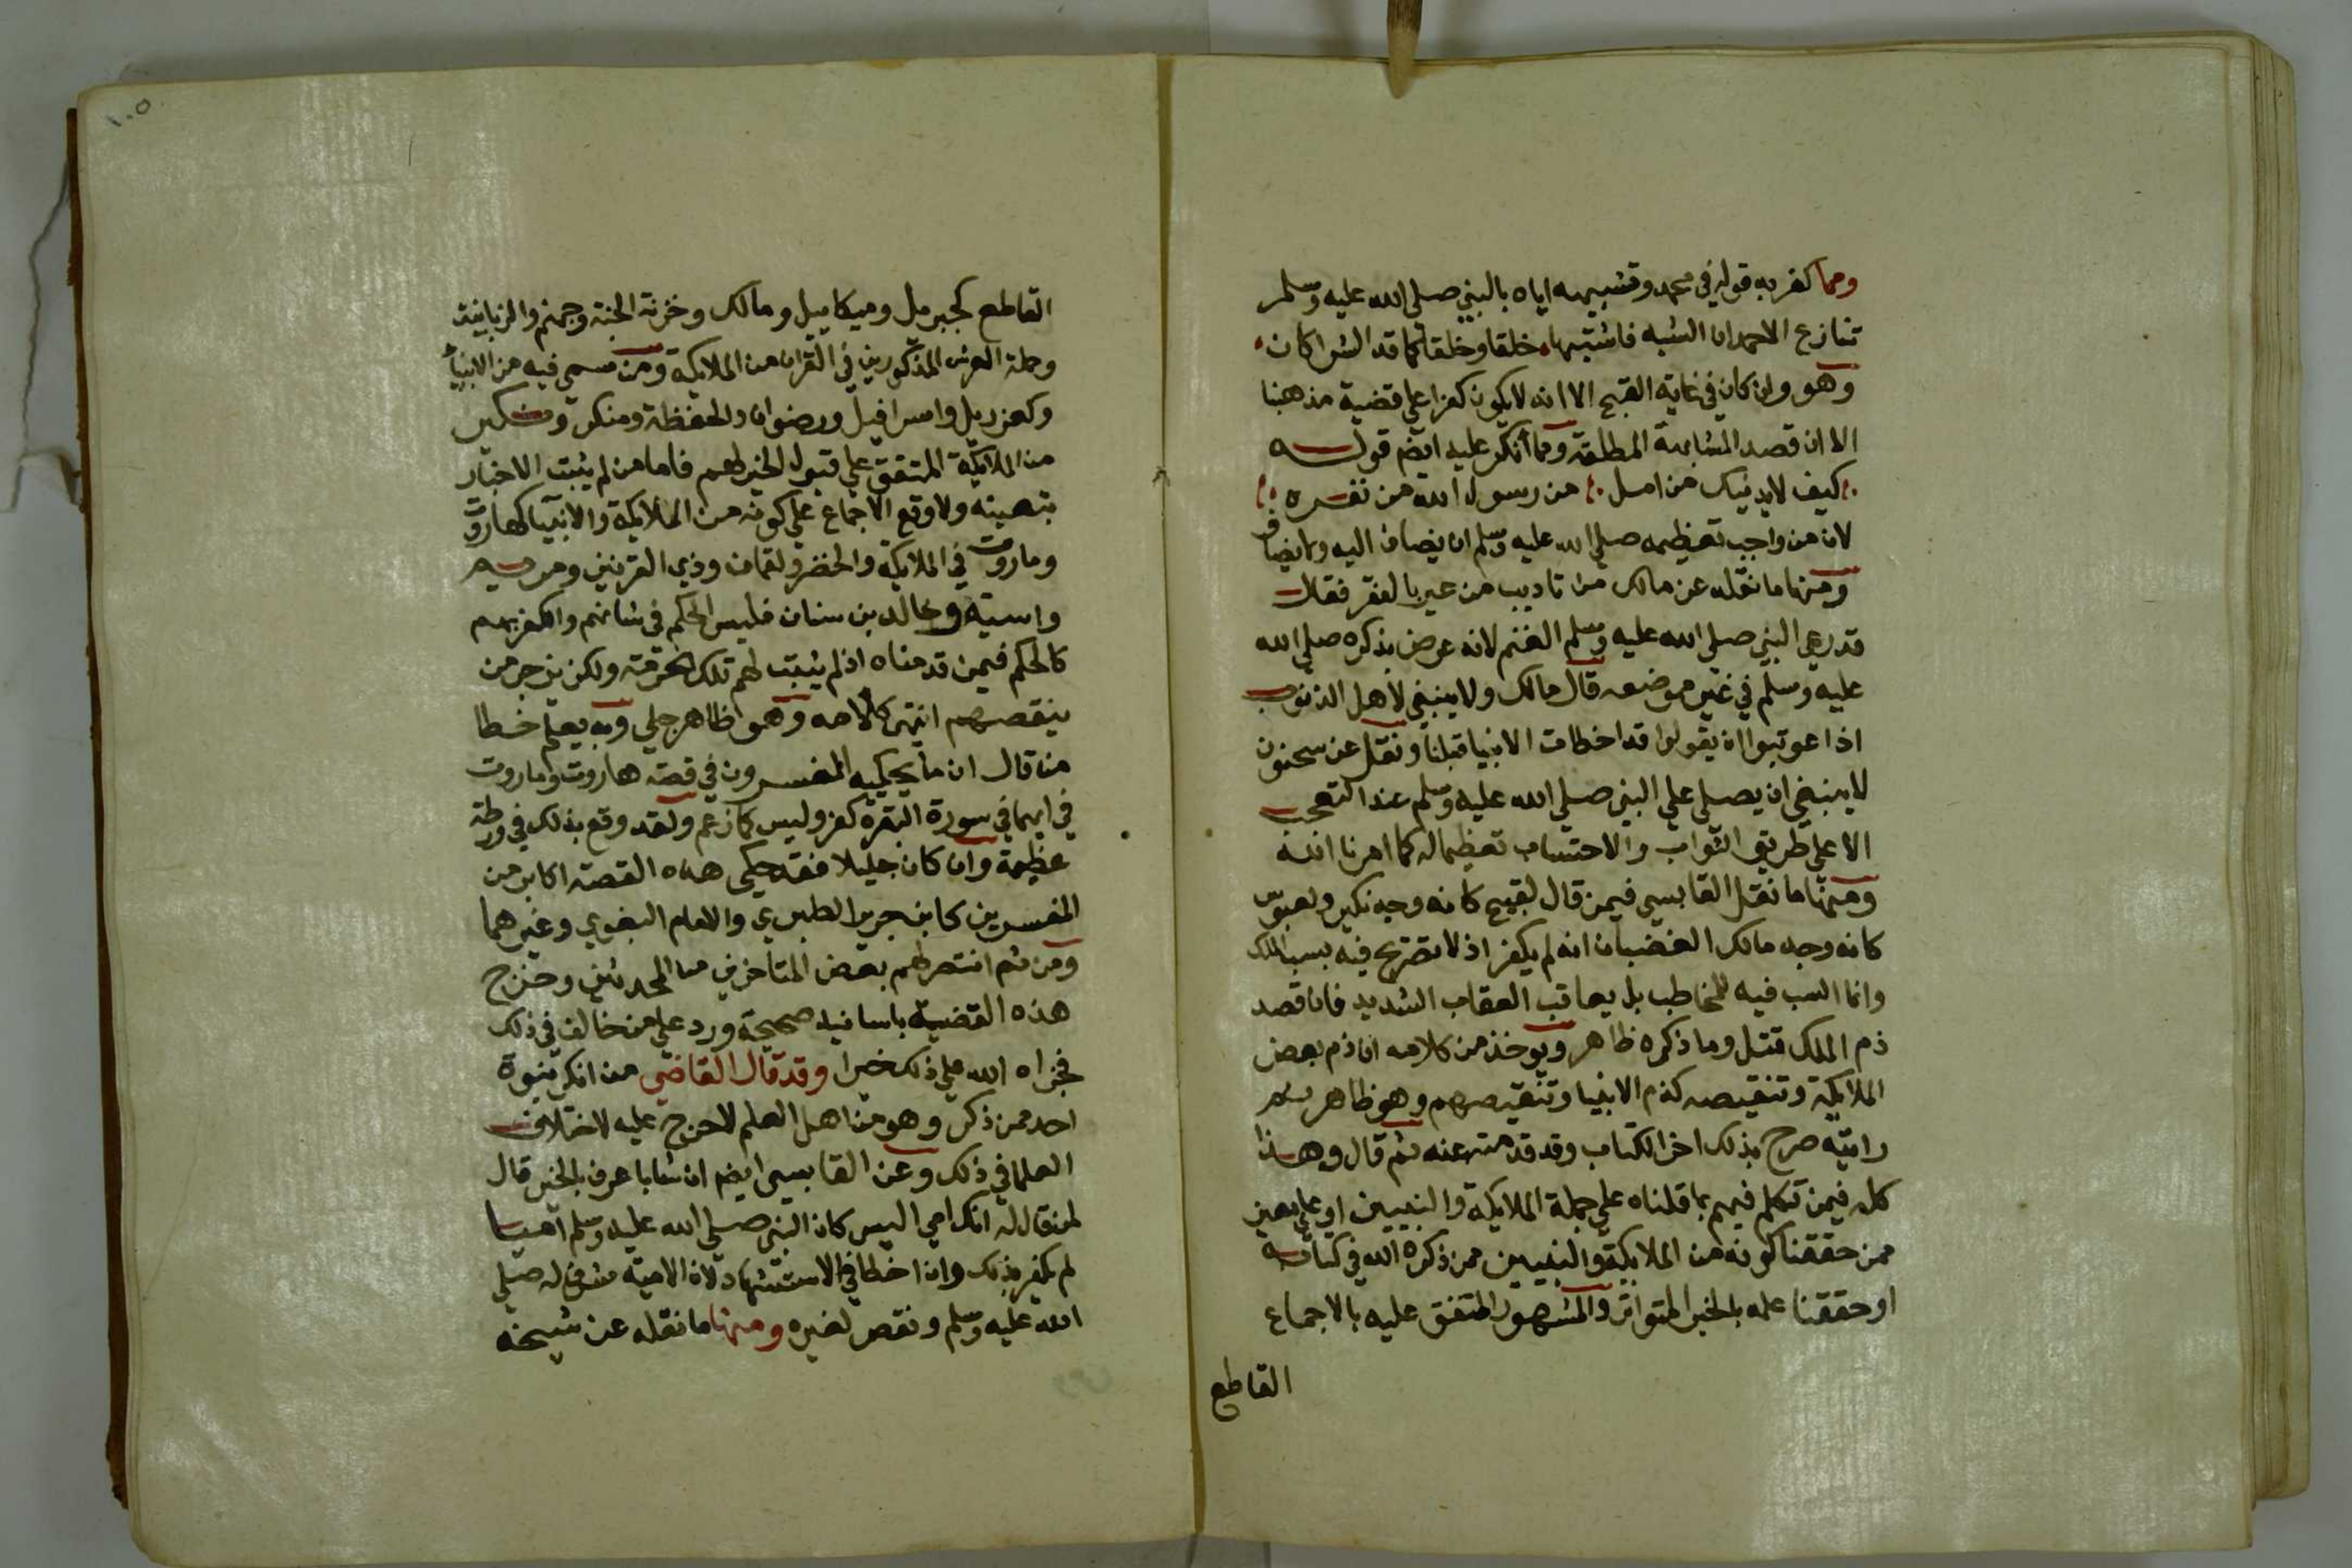 ومما كفر به قوله في محمد وتشبيهه اياه بالنبي صلي الله عليه وسلم
تنازع الاحمدان الشبه فاشتبها خلقا وخلقا كما قد الشراكان
وهو وان كان في غاية القبح الا انه لا يكون كفرا علي قضية مذهبنا
الا ان قصد المشابهة المطلقة ومما أنكر عليه ايضم قوله
كيف لا يدنيك من امل من رسول الله من نفره
لان من واجب تعظيمه صلي الله عليه وسلم ان يضاف اليه ولا يضاف
ومنها ما نقله عن مالك من تاديب من عير بالفقر فقال
قد رعي النبي صلي الله عليه وسلم الغنم لانه عرض بذكره صلي الله
عليه وسلم في غير موضعه قال مالك ولا ينبغي لأهل الذنوب
اذا عوتبوا ان يقولوا قد اخطات الانبيا قبلنا ونقل عن سحنون
لا ينبغي ان يصلي علي النبي صلي الله عليه وسلم عند التعجب
الا علي طريق الثواب والاحتساب تعظيما له كما امرنا الله
ومنها ما نقل القابسي فيمن قال لقبيح كانه وجه نكير ولعبوس
كانه وجه مالك الغضبان انه لم يكفر اذ لا تصريح فيه بسب الملك
وانما السب فيه للمخاطب بل يعاقب العقاب الشديد فان قصد
ذم الملك قتل وما ذكره ظاهر ويوخذ من كلامه ان ذم بعض
الملايكة وتنقيصه كذم الانبيا وتنقيصهم وهو ظاهر ثم
رايته صرح بذلك اخر الكتاب وقد قدمته عنه ثم قال وهذا
كله فيمن تكلم فيهم بما قلناه علي جملة الملايكة والنبيين او علي معين
ممن حققنا كونه من الملايكة والنبيين ممن ذكره الله في كتابه
او حققنا علمه بالخبر المتواتر والمشهور المتفق عليه بالاجماع
القاطع
١٠٥
القاطع كجبريل وميكاييل ومالك وخزنة الجنة وجهنم والزبانية
وحملة العرش المذكورين في القران من الملايكة ومن سمي فيه من الانبيا
وكعزريل واسرافيل ورضوان والحفظة ومنكر ونكير
من الملايكة المتفق علي قبول الخبر لهم فاما من لم يثبت الاخبار
بتعينه ولا وقع الاجماع علي كونه من الملايكة والانبيا كهاروت
وماروت في الملايكة والخضر ولقمان وذي القرنين ومريم
واسية وخالد بن سنان فليس الحكم في شانهم والكفر بهم
كالحكم فيمن قدمناه اذ لم يثبت لهم تلك الحرمة ولكن يزجر من
ينقصهم انتهي كلامه وهو ظاهر جلي وبه يعلم خطا
من قال ان ما يحكيه المفسرون في قصة هاروت وماروت
في ايهما في سورة البقرة كفر وليس كما زعم ولقد وقع بذلك في ورطة
عظيمة وان كان جليلا فقد حكي هذه القصة اكابر من
المفسرين كابن جرير الطبري والامام البغوي وغيرهما
ومن ثم انتصر لهم بعض المتاخرين من المحدثين وخرج
هذه القضية باسانيد صحيحة ورد علي من خالف في ذلك
فجزاه الله علي ذلك خيرا وقد قال القاضي من انكر نبوة
احد ممن ذكر وهو من اهل العلم لا حرج عليه لاختلاف
العلما في ذلك وعن القابسي ايضم ان شابا عرف بالخير قال
لمن قال له انك امي اليس كان النبي صلي الله عليه وسلم اميا
لم يكفر بذلك وان اخطا في الاستشهاد لان الامية شرف له صلي
الله عليه وسلم ونقص لغيره ومنها ما نقله عن شيخه